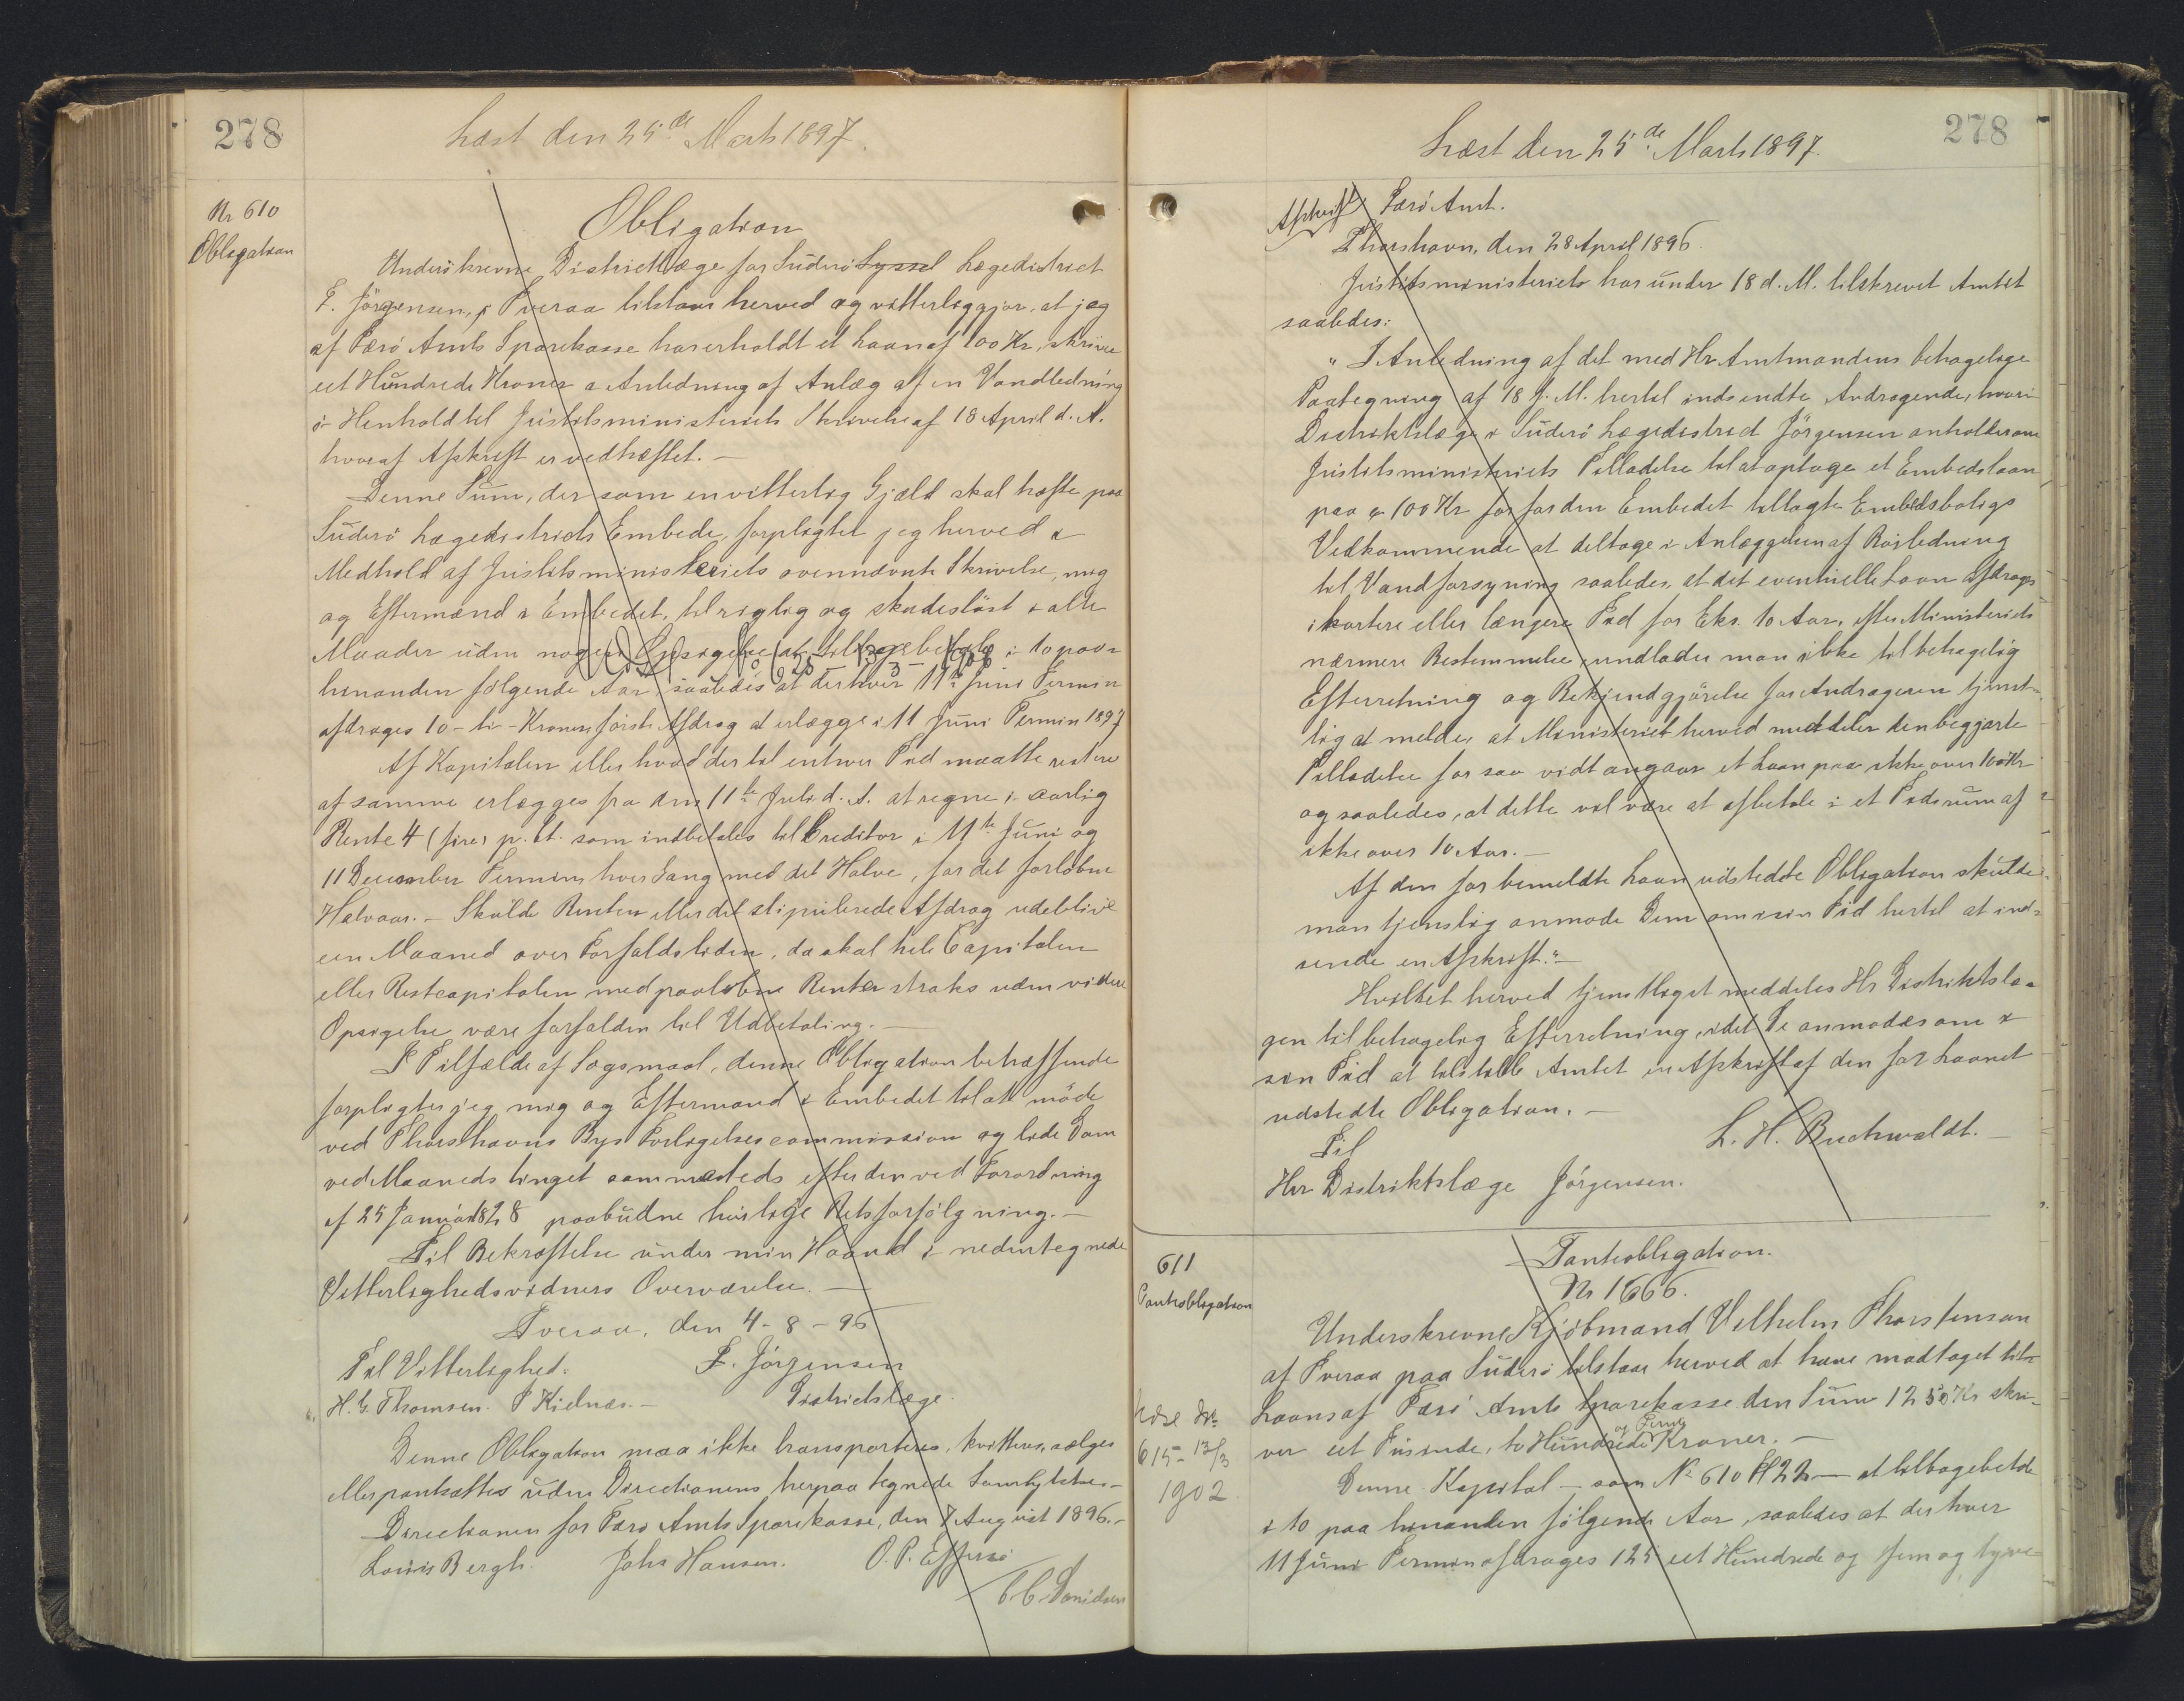 278
Læst den 25de Marts 1897.
Nr 610
Obligation
Obligation
Underskrevne Districtslæge for Suderö Syssel Lægedistrict
F. Jörgensen, Tveraa tilstaar herved og vitterliggjör, at jeg
af Færö Amts Sparekasse har erholdt et Laan af 100 Kr, skriver
eet Hundrede Kroner i Anledning af Anlæg af en Vandledning
i Henhold til Justitsministeriets Skrivelse af 18 April d. A.
hvoraf Afskrift er vedhæftet.—
Denne Sum, der som en vitterlig Gjæld skal hæfte paa
Suderö Lægedistricts Embede, forpligtet jeg herved i
Medhold af Justitsministeriets ovennævnte Skrivelse, mig
og Eftermænd i Embedet, til rigtig og skadeslöst i alle
Maader uden nogen Opsigelse at tilbagebetale i 10 paa
hinanden fölgende Aar, saaledes at der hver 11te Juni Termin
afdrages 10 - ti - Kroner, förste Afdrag at erlægge i 11 Juni Termin 1897
Af Kapitalen eller hvad der til enhver Tid maatte restere
af samme erlægges fra den 11te Juli d. A. at regne i aarlig
Rente 4 (fire) p. Ct. som indbetales til Creditor i 11te Juni og
11 December Termin hver Gang med det Halve, for det forlöbne
Halvaar.— Skulde Renten eller det stipulerede Afdrag udeblive
een Maaned over Forfaldstiden, da skal hele Capitalen
eller Restcapitalen med paalöbne Renter straks uden videre
Opsigelse være forfalden til Udbetaling.—
I Tilfælde af Sogsmaal, denne Obligation betræffende
forpligter jeg mig og Eftermænd i Embedet til at möde
ved Thorshavns Byes Forligelsescommission og lide Dom
ved Maanedstinget sammesteds efter den ved Forordning
af 25 Januar 1828 paabudne hurtige Retsforfölgning.—
Til Bekræftelse under min Haand i nedentegnede
Vitterlighedsvidners Overværelse.—
Tveraa, den 4 - 8 - 96
Til Vitterlighed: F. Jörgensen
H. G. Thomsen. P Kidnæs.— Districtslæge.
Denne Obligation maa ikke transporteres, kvitteres, sælges
eller pantsættes uden Directionens herpaa tegnede Samtykke.—
Directionen for Færö Amts Sparekasse, den 7 August 1896.—
Louis Bergh. Johs Hansen. O. P. Effersö
C. C. Danielsen
278
Læst den 25de Marts 1897.
Afskrift. Færö Amt.
Thorshavn, den 28 April 1896.
Justitsministeriet har under 18 d. M. tilskrevet Amtet
saaledes:
„I Anledning af det med Hr Amtmandens behagelige
Paategning af 18 f. M. hertil indsendte Andragende, hvori
Distriktslæge i Suderö Lægedistrict Jörgensen anholder om
Justitsministeriets Tilladelse til at optage et Embedslaan
paa 100 Kr for for den Embedet tillagte Embedsboligs
Vedkommende at deltage i Anlæggelsen af Rörledning
til Vandforsyning saaledes, at det eventuelle Laan afdrages
i kortere eller længere Tid for Eks. 10 Aar, efter Ministeriets
nærmere Bestemmelse, undlader man ikke til behagelig
Efterretning og Bekjendtgjörelse for Andrageren tjenst-
lig at melde, at Ministeriet herved meddeler den begjærte
Tilladelse for saa vidt angaar et Laan paa ikke over 100 Kr
og saaledes, at dette vil være at afbetale i et Tidsrum af
ikke over 10 Aar.—
Af den for bemeldte Laan udstedte Obligation skulde
man tjenstlig anmode Dem om i sin Tid hertil at ind-
sende en Afskrift."—
Hvilket herved tjenstligst meddeles Hr Distriktslæ-
gen til behagelig Efterretning, idet De anmodes om i
sin Tid at tilstille Amtet en Afskrift af den for Laanet
udstedte Obligation.—
Til L. H. Buchwaldt.—
Hr Distriktslæge Jörgensen.
611
Pantobligation
Pantobligation.
Nr 1666.
Underskrevne Kjöbmand Vilhelm Thorstensen
af Tveraa paa Suderö tilstaar herved at have modtaget til
Laans af Færö Amts Sparekasse den Sum 1250 Kr skri-
ver eet Tusinde, to Hundrede og Femti Kroner.—
615 - 13/3
1902
Denne Kapital — som No 610 — at tilbagebetale
i 10 paa hinanden fölgende Aar, saaledes at der hver
11 Juni Termin afdrages 125 eet Hundrede og fem og tyve